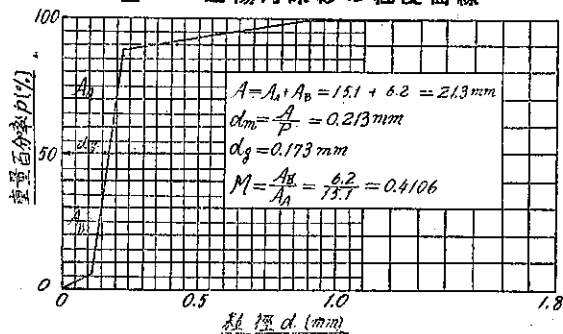 100
50
0
重量百分率 p(%)
A = A_A + A_B = 15.1 + 6.2 = 21.3 mm
d_m = A/P = 0.213 mm
d_g = 0.173 mm
M = A_B/A_A = 6.2/15.1 = 0.4106
0 0.5 1.0 1.8
粒徑 d. (mm)